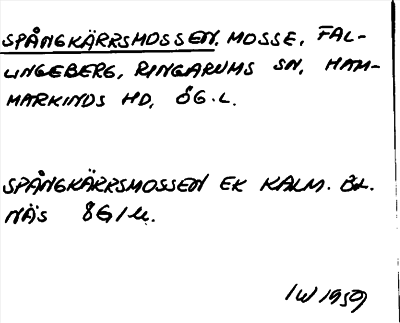 SPÅNGKÄRRSMOSSEN, MOSSE, FAL-
LINGEBERG, RINGARUMS SN, HAM-
MARKINDS HD, ÖG.L.
SPÅNGKÄRRSMOSSEN EK KALM. BL.
NÄS
IW 1959